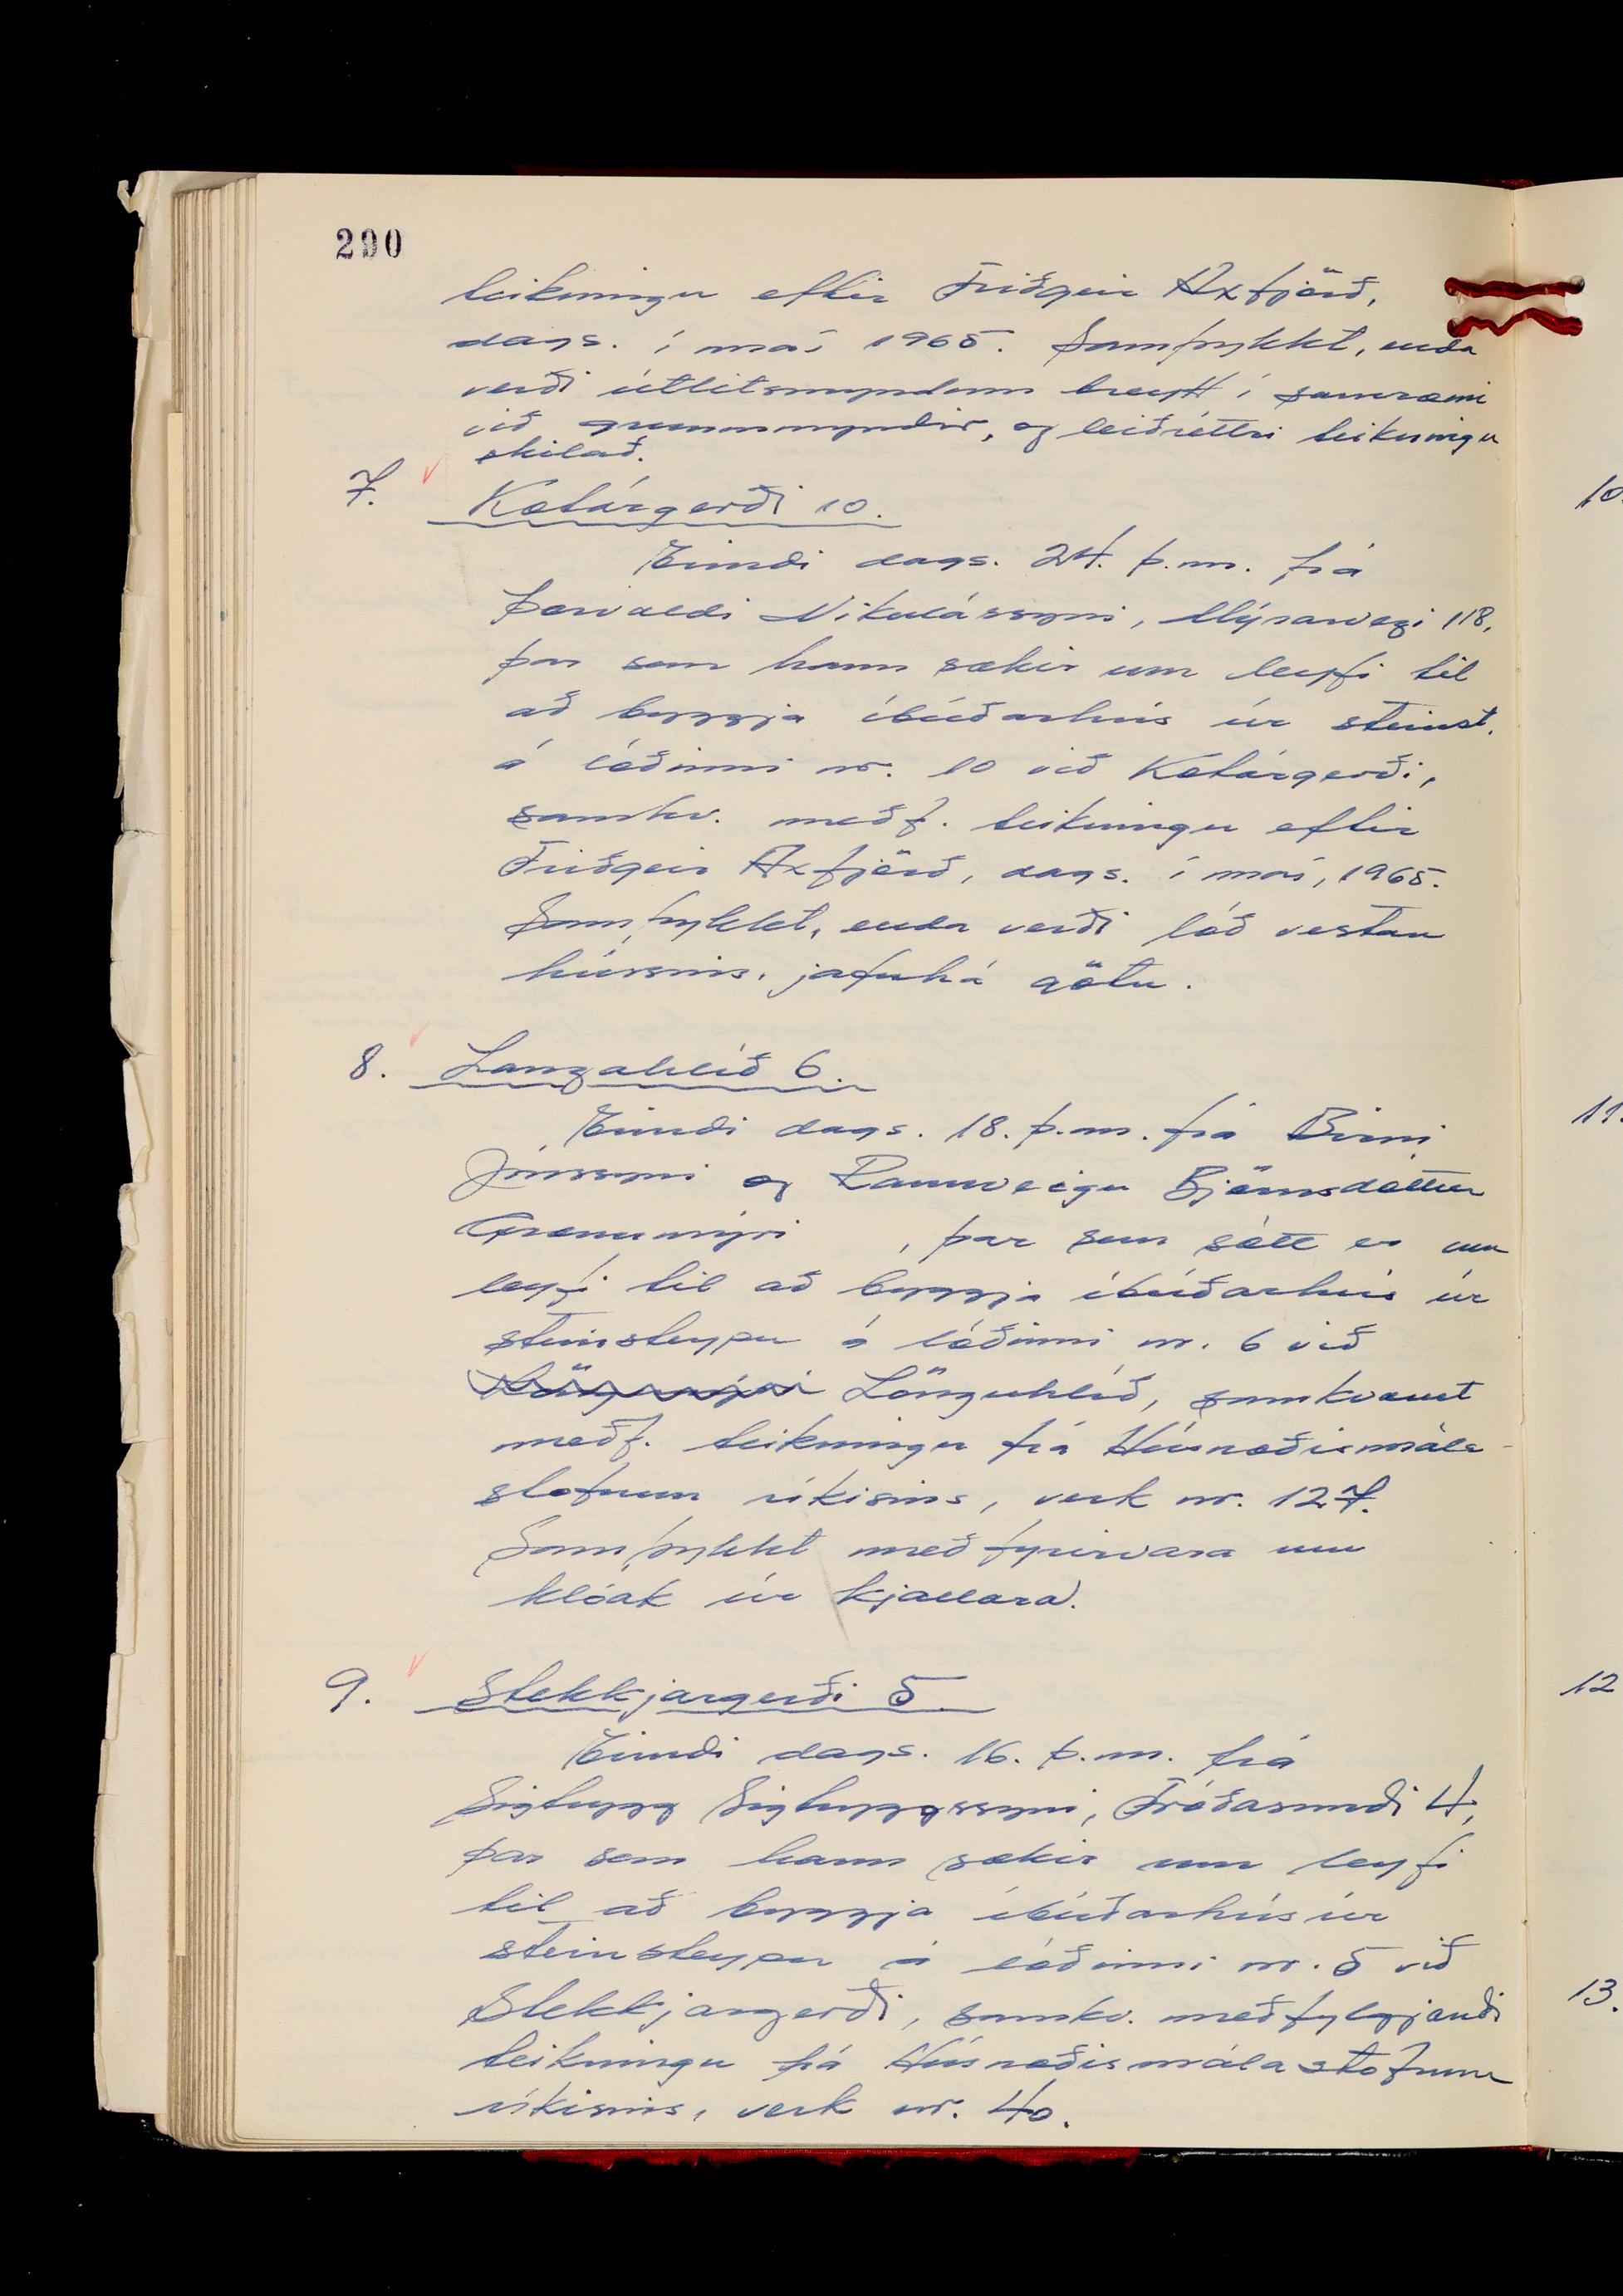 290
teikningu eftir Friðgeir Axfjörð,
dags. í maí 1965. Samþykkt, enda
verði útlitsmyndum breytt í samræmi
við grunnmyndir, og leiðréttri teikningu
skilað.
7. Kotárgerði 10.
Erindi dags. 24. þ.m. frá
Þorvaldi Nikulássyni, Mýrarvegi 118,
þar sem hann sækir um leyfi til
að byggja íbúðarhús úr steinst.
á lóðinni nr. 10 við Kotárgerði,
samkv. meðf. teikningu eftir
Friðgeir Axfjörð, dags. í maí, 1965.
Samþykkt, enda verði lóð vestan
hússins, jafnhá götu.
8. Langahlíð 6.
Erindi dags. 18. þ.m. frá Birni
Jónssyni og Rannveigu Björnsdóttur
Grænumýri , þar sem sótt er um
leyfi til að byggja íbúðarhús úr
steinsteypu á lóðinni nr. 6 við
Lönguhlíð, samkvæmt
meðf. teikningu frá Húsnæðismála-
stofnun ríkisins, verk nr. 127.
Samþykkt með fyrirvara um
klóak úr kjallara.
9. Stekkjargerði 5
Erindi dags. 16. þ.m. frá
Sigtrygg Sigtryggssyni, Fróðasundi 4,
þar sem hann sækir um leyfi
til að byggja íbúðarhús úr
steinsteypu á lóðinni nr. 5 við
Stekkjargerði, samkv. meðfylgjandi
teikningu frá Húsnæðismálastofnun
ríkisins, verk nr. 40.
10.
11.
12
13.